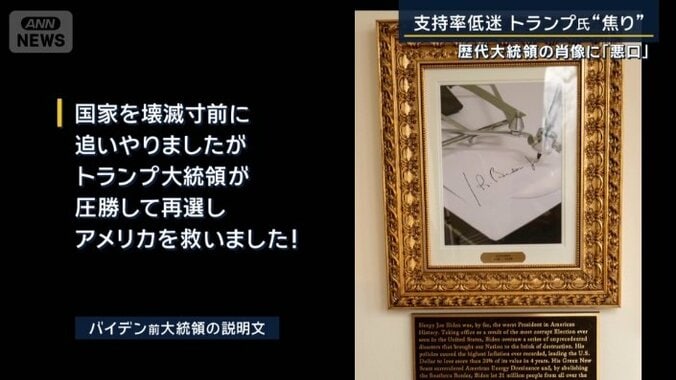 ANN
NEWS
支持率低迷 トランプ氏“焦り”
歴代大統領の肖像に「悪口」
国家を壊滅寸前に
追いやりましたが
トランプ大統領が
圧勝して再選し
アメリカを救いました！
バイデン前大統領の説明文
Sleepy Joe Biden was, by far, the worst President in American
History. Taking office as a result of the most corrupt Election ever
seen in the United States, Biden oversaw a series of unprecedented
disasters that brought our Nation to the brink of destruction. His
policies caused the highest Inflation ever recorded, leading the U.S.
Dollar to lose more than 20% of its value in 4 years. His Green New
Scam surrendered American Energy Dominance and, by abolishing
the Southern Border, Biden let 21 million people from all over the